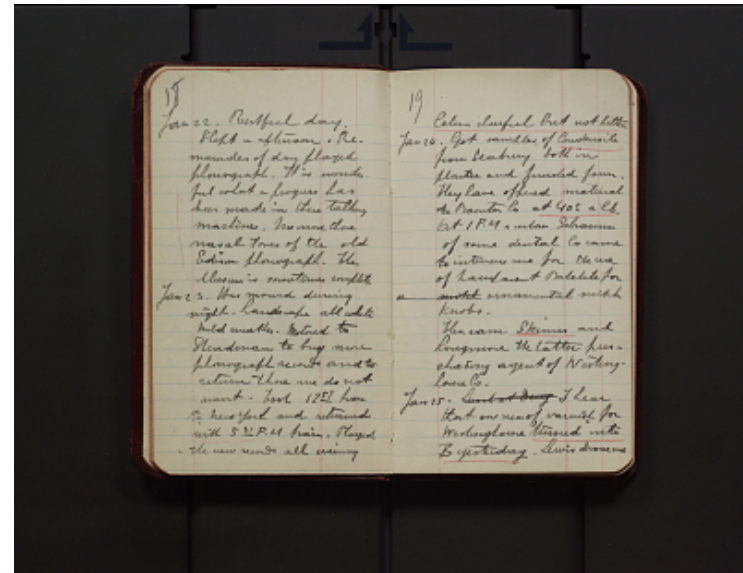 18
Jan 22. Restful day.
Slept in afternoon. Re-
mainder of day played
phonograph. It is wonder
ful what a progress has
been made in these talking
machines. No more those
nasal tones of the old
Edison phonograph. The
illusion is sometimes complete
Jan 23. Has snowed during
night. Landscape all white
mild weather. Motored to
to buy more
phonograph records and to
return those we do not
want. Took 12 from
to New York and returned
with 5 P.M. train. Played
the new records all evening
19
cheerful But not better
Jan 24. Got samples of Condensite
from Seabury both in
plaster and powdered form.
They have offered material
to Boonton Co at 40¢ a lb.
At 1 P.M. a man
of some dental Co came
to interview me for the use
of transparent Bakelite for
ornamental
knobs.
Then came Skinner and
the latter pur-
chasing agent of Westing-
house Co.
Jan 25. I hear
that one run of varnish for
Westinghouse turned into
B yesterday. Lewis